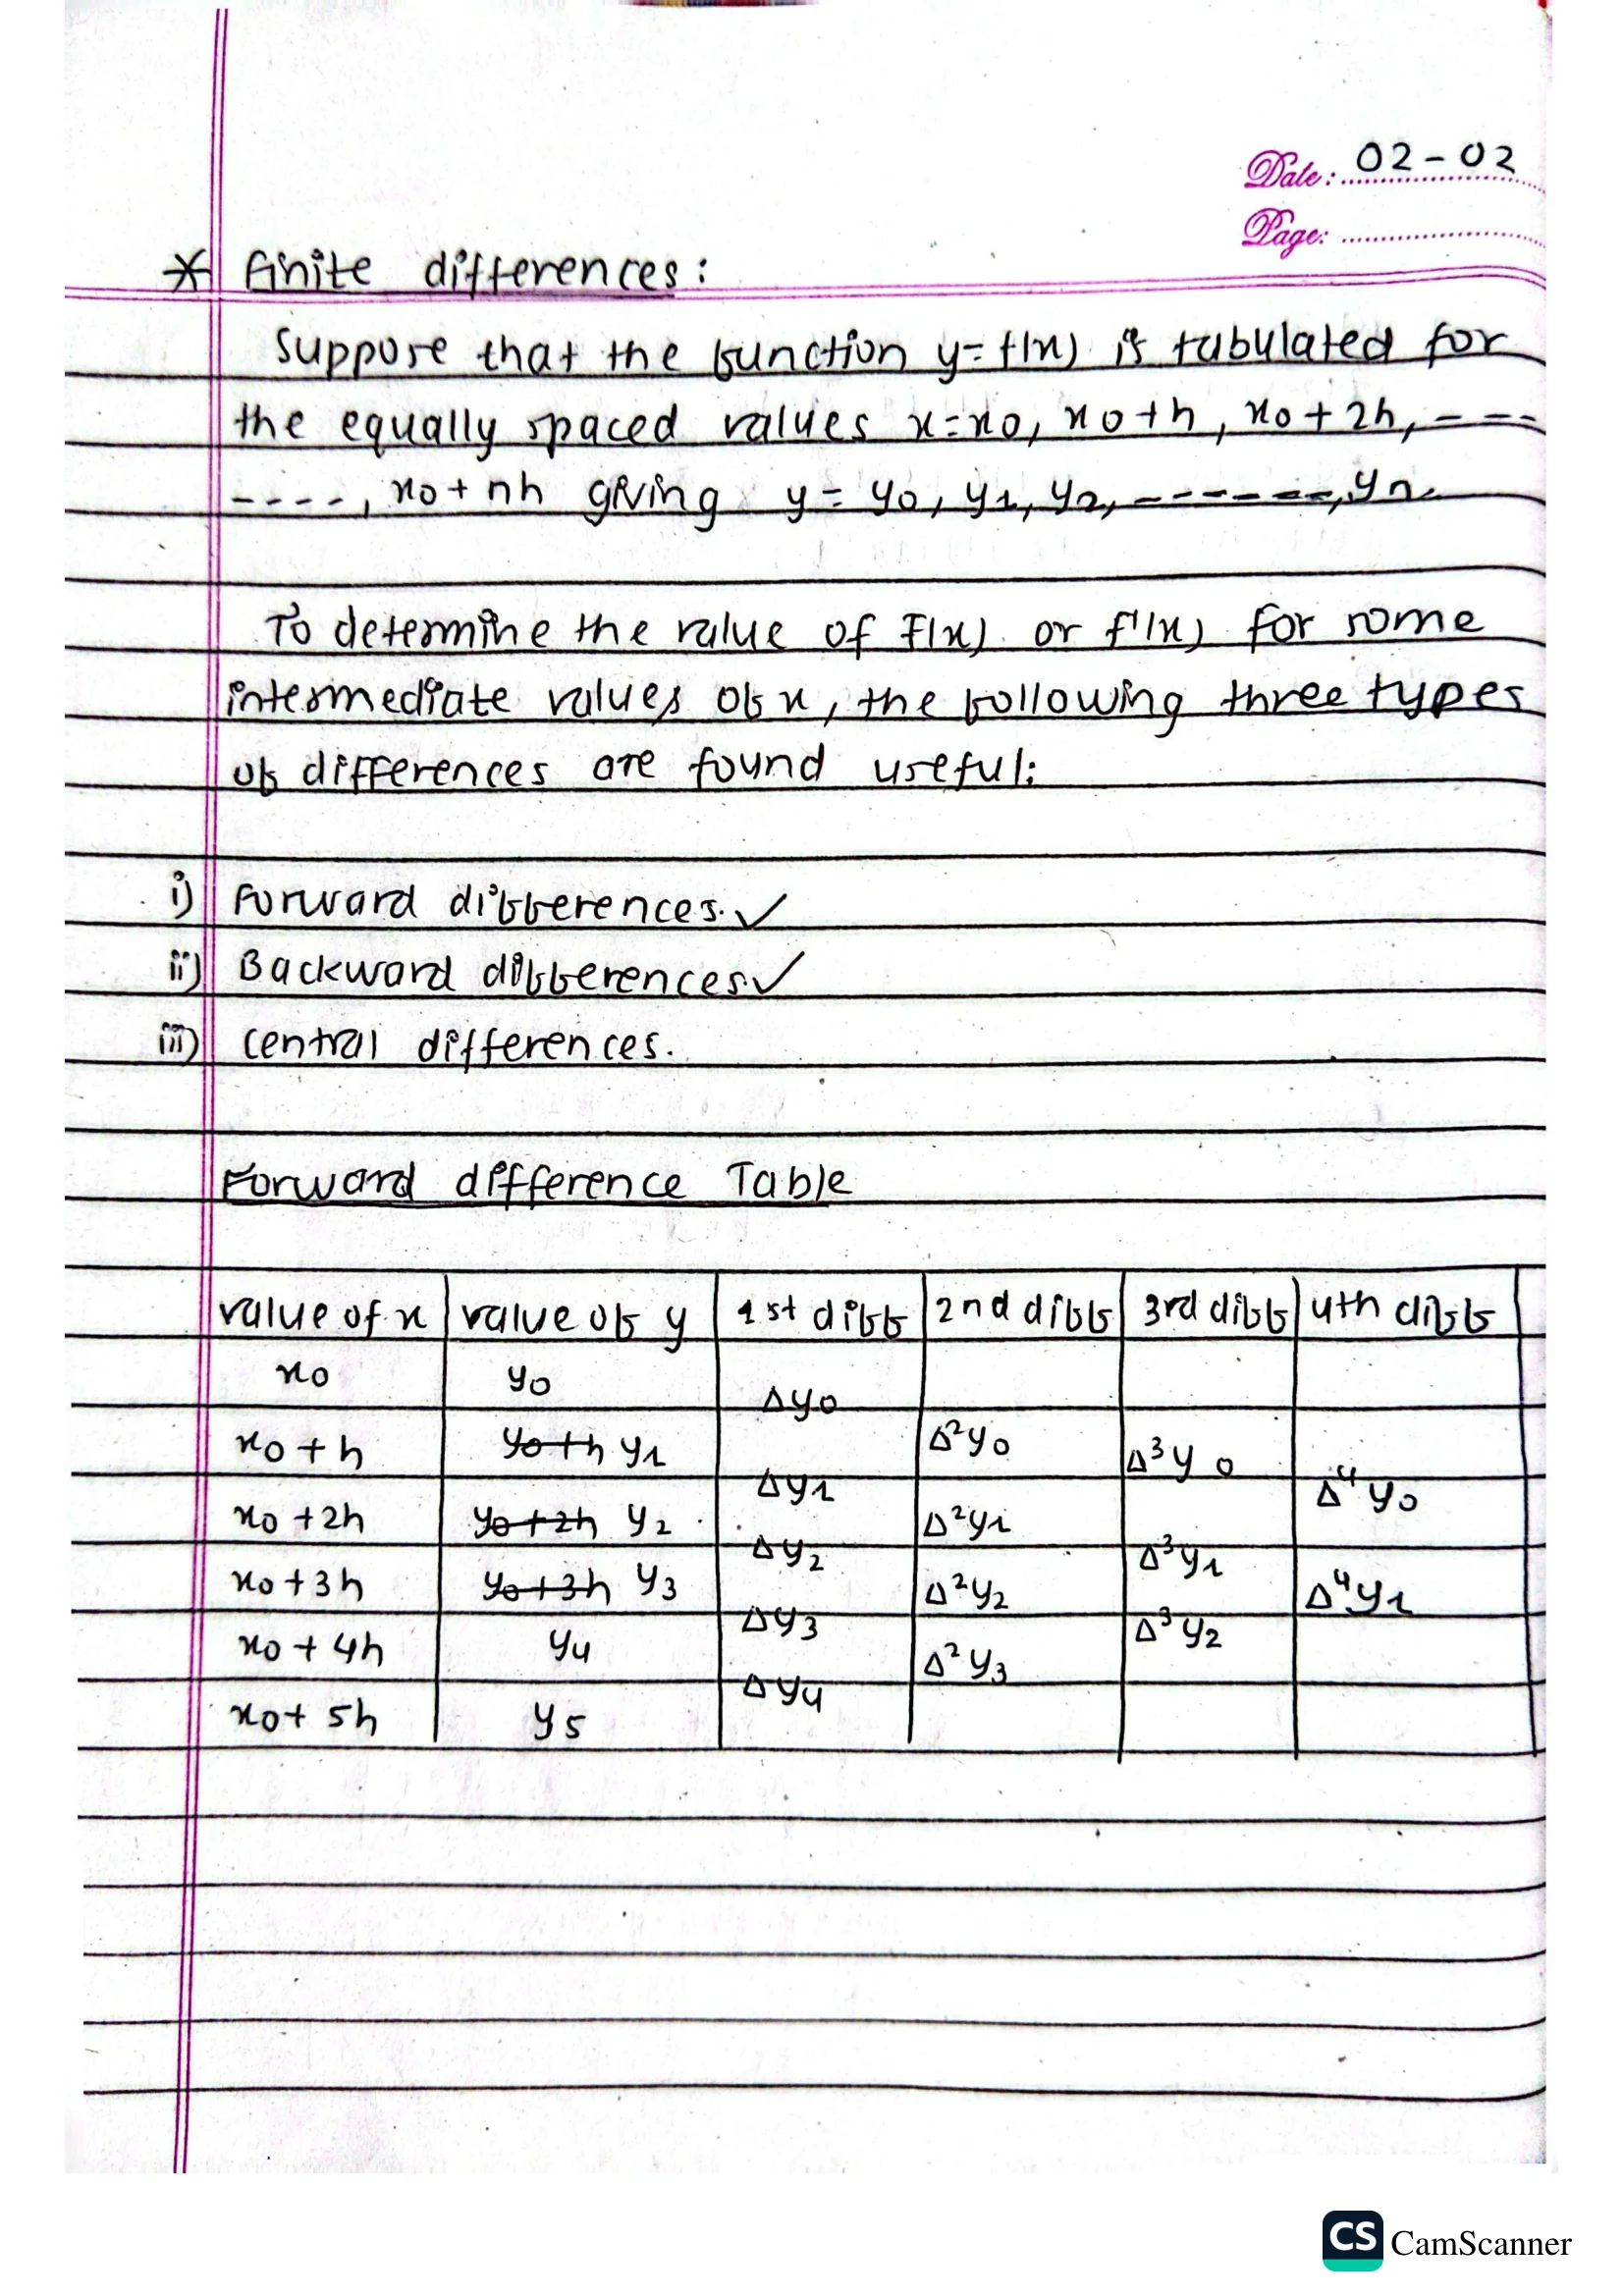 Date: 02-02
Page:
* Finite differences:
Suppose that the function y=f(x) is tabulated for
the equally spaced values x=x0, x0+h, x0+2h, ----
----, x0+nh giving y= y0, y1, y2, -------, yn.
To determine the value of F(x) or f'(x) for some
intermediate values of x, the following three types
of differences are found useful:
i) Forward differences. ✓
ii) Backward differences. ✓
iii) Central differences.
Forward difference Table
value of x | value of y | 1st diff | 2nd diff | 3rd diff | 4th diff
x0 y0
Δy0
x0+h y0+h y1 Δ²y0 Δ³y0
Δy1 Δ⁴y0
x0+2h y0+2h y2 Δ²y1
Δy2 Δ³y1
x0+3h y0+3h y3 Δ²y2 Δ⁴y1
Δy3 Δ³y2
x0+4h y4 Δ²y3
Δy4
x0+5h y5
CS CamScanner